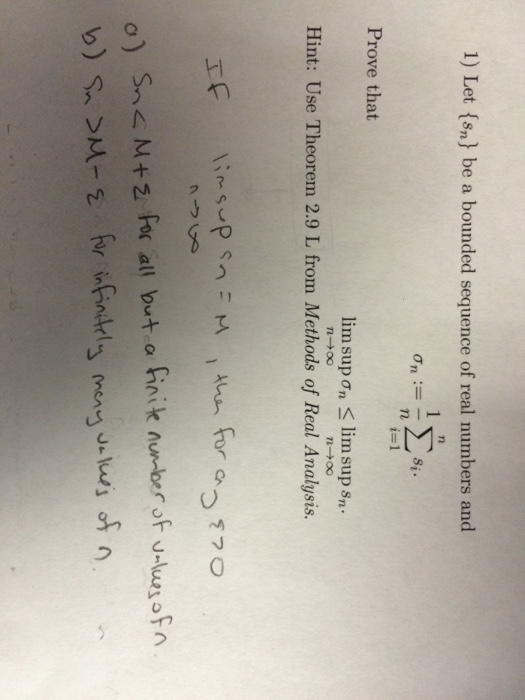 1) Let {sₙ} be a bounded sequence of real numbers and
σₙ := 1/n ∑ᵢ₌₁ⁿ sᵢ.
Prove that
lim sup σₙ ≤ lim sup sₙ.
n→∞ n→∞
Hint: Use Theorem 2.9 L from Methods of Real Analysis.
If limsup sn = M, then for any ε>0
n→∞
a) Sn < M+ε for all but a finite number of values of n.
b) Sn > M-ε for infinitely many values of n.